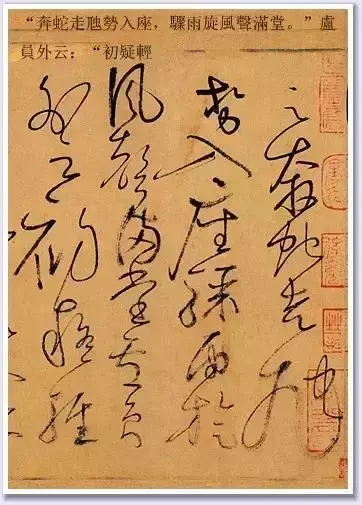 “奔蛇走虺勢入座，驟雨旋風聲滿堂。”盧
員外云：“初疑輕
云奔蛇走虺
勢入座驟雨旋
風聲滿堂盧員
外云初疑輕